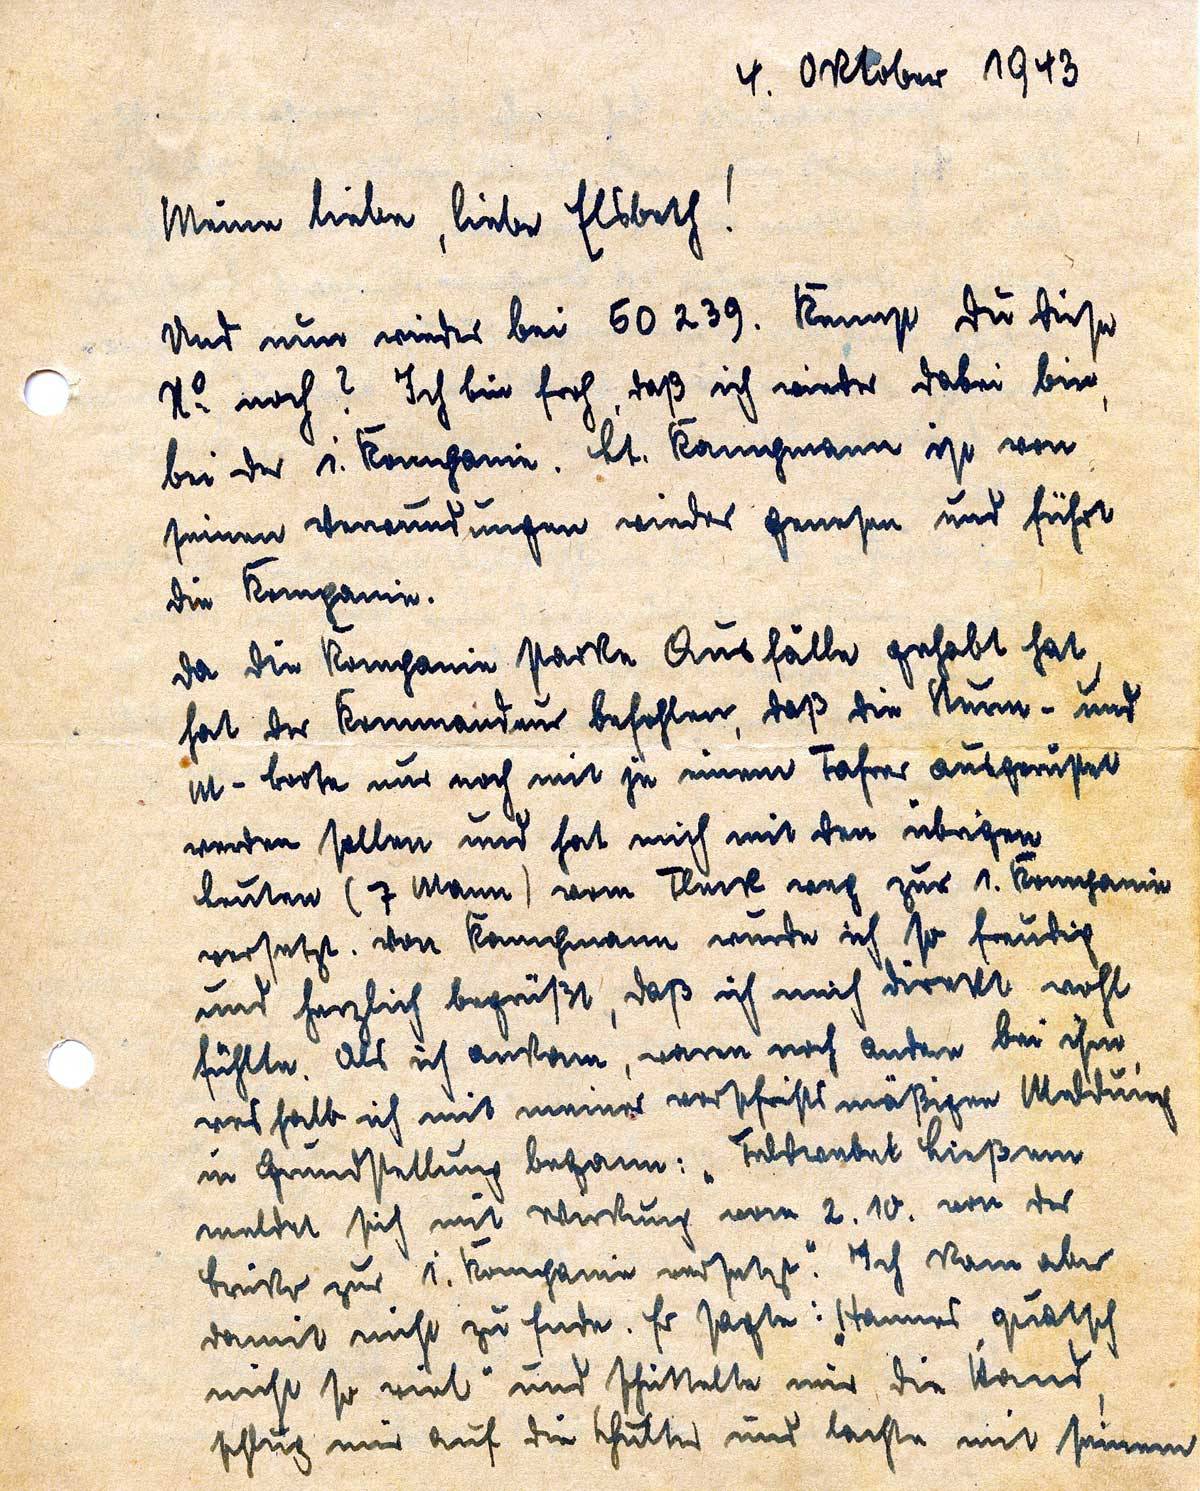 4. Oktober 1943
Meine liebe, liebe Elsbeth!
Und nun wieder bei 50 239. Kennst Du diese
No noch? Ich bin froh, daß ich wieder dabei bin,
bei der 1. Kompanie. Lt. Kampmann ist von
seinen Verwundungen wieder genesen und führt
die Kompanie.
Da die Kompanie starke Ausfälle gehabt hat,
hat der Kommandeur befohlen, daß die Sturm- und
M-boote nur noch mit je einem Fahrer ausgerüstet
werden sollen und hat mich mit den übrigen
Leuten (7 Mann) vom Fleck weg zur 1. Kompanie
versetzt. Von Kampmann wurde ich so freudig
und herzlich begrüßt, daß ich mich direkt wohl
fühlte. Als ich ankam, waren noch andere bei ihm,
weshalb ich mit meiner vorschriftsmäßigen Meldung
in Grundstellung begann: „Feldwebel Ließem
meldet sich mit Wirkung vom 2.10. von der
Brüko zur 1. Kompanie versetzt“. Ich kam aber
damit nicht zu Ende. Er sagte: „Hannes, quatsch
nicht so viel“ und schüttelte mir die Hand,
schlug mir auf die Schulter und lachte mit seinem